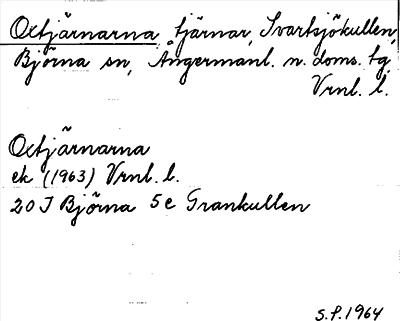 Oxtjärnarna, tjärnar, Svartsjökullen,
Björna sn, Ångermanl. n. doms. tg,
Vrnl. l.
Oxtjärnarna
ek (1963) Vrnl. l.
20 J Björna 5e Grankullen
S.P. 1964